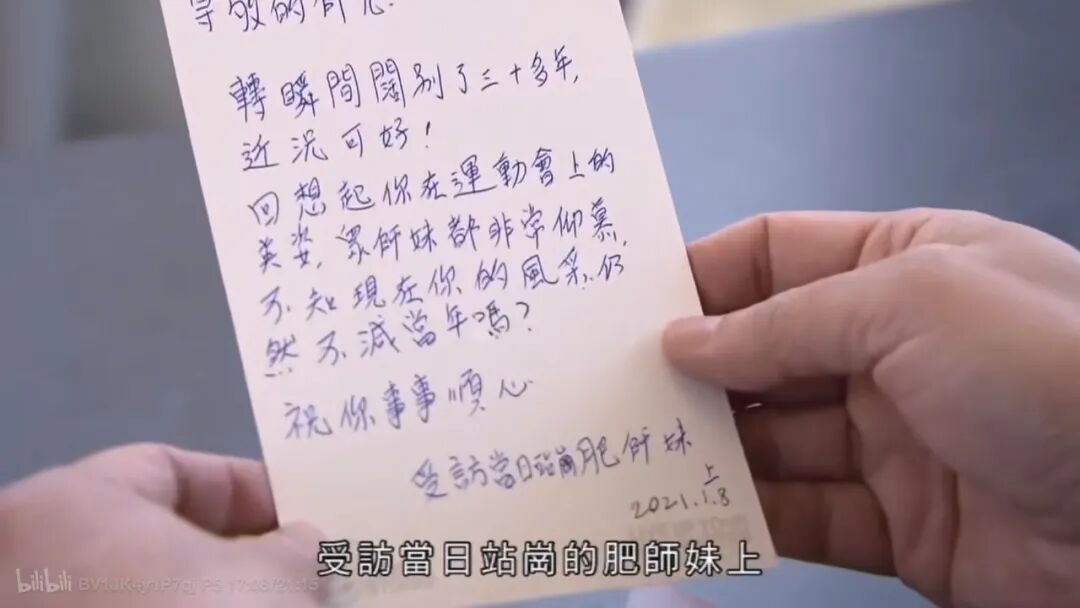 轉瞬間闊別了三十多年,
近況可好!
回想起你在運動會上的
英姿,眾師妹都非常仰慕,
不知現在你的風采仍
然不減當年嗎?
祝你事事順心
受訪當日站崗肥師妹
上
2021.1.8
受訪當日站崗的肥師妹上
bilibili